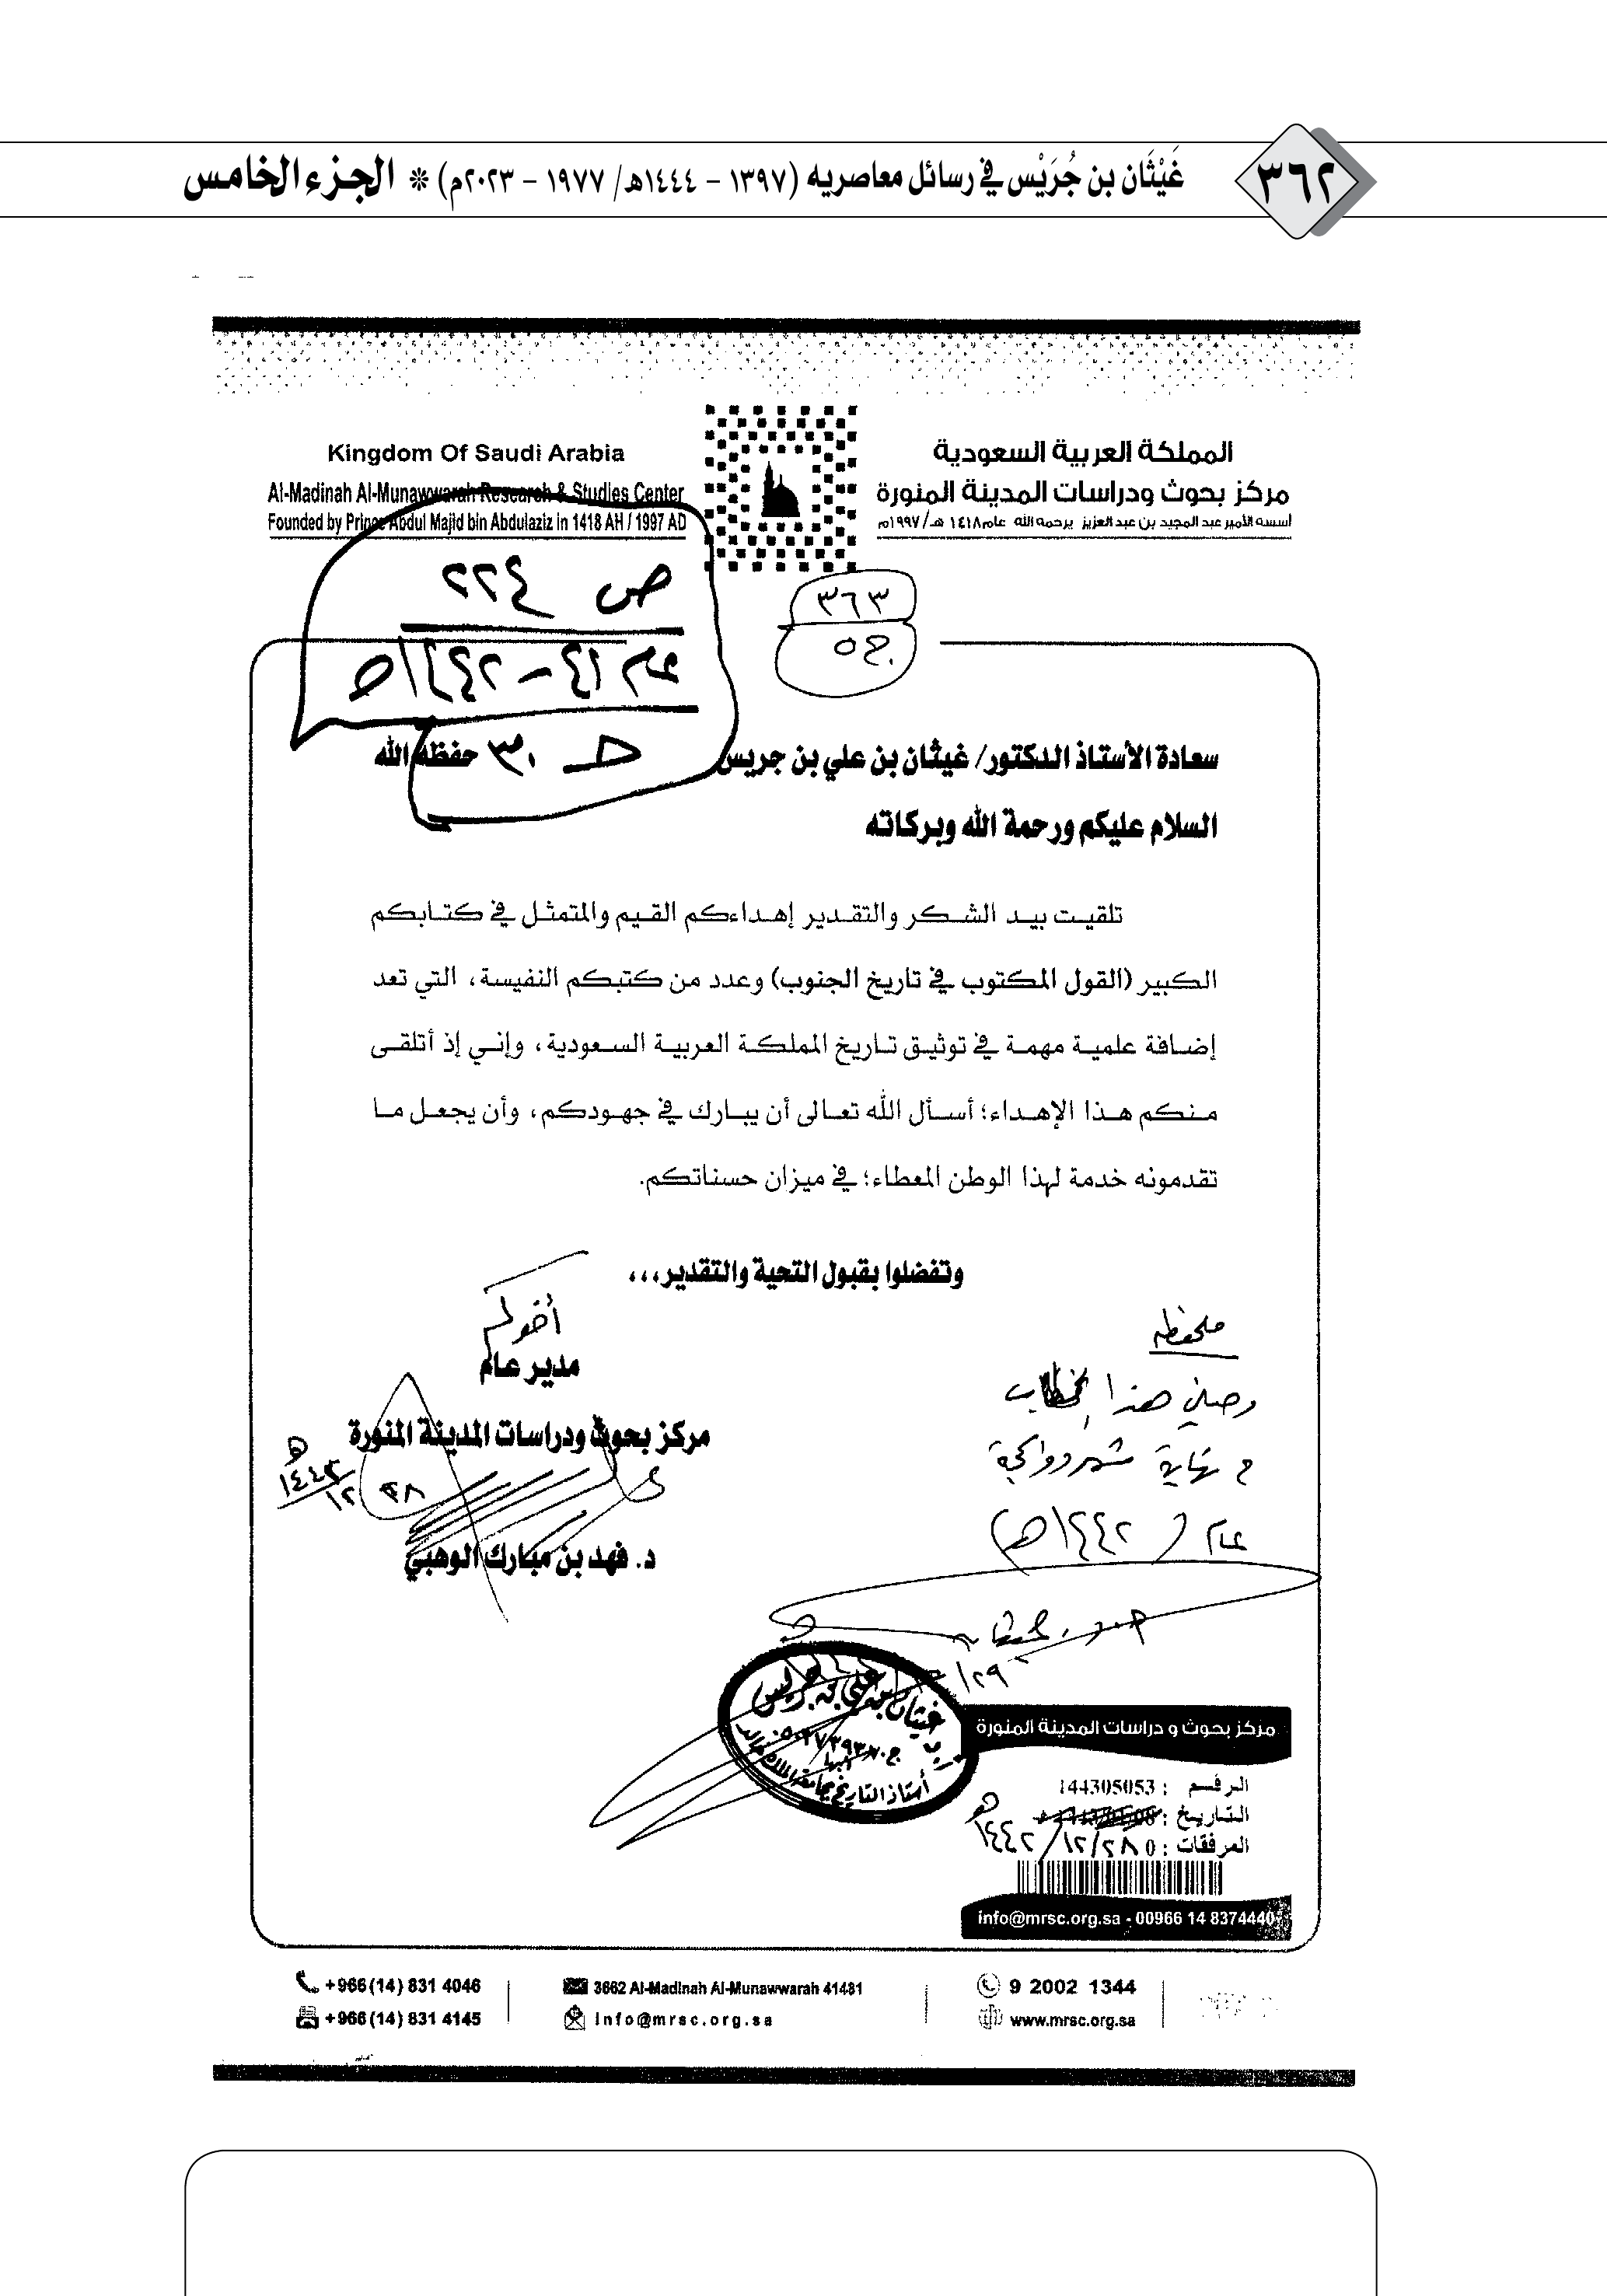 ٣٦٢
غَيْثَان بن جُرَيْس في رسائل معاصريه (١٣٩٧ – ١٤٤٤هـ/ ١٩٧٧ – ٢٠٢٣م) ❊ الجزء الخامس
المملكة العربية السعودية
مركز بحوث ودراسات المدينة المنورة
أسسه الأمير عبد المجيد بن عبد العزيز يرحمه الله عام ١٤١٨ هـ/ ١٩٩٧م
Kingdom Of Saudi Arabia
Al-Madinah Al-Munawwarah Research & Studies Center
Founded by Prince Abdul Majid bin Abdulaziz in 1418 AH / 1997 AD
ص ٢٢٤
عام ٤١ – ١٤٤٢هـ
٣٦٣
ج٥
سعادة الأستاذ الدكتور/ غيثان بن علي بن جريس حفظه الله
السلام عليكم ورحمة الله وبركاته
تلقيت بيد الشكر والتقدير إهداءكم القيم والمتمثل في كتابكم
الكبير (القول المكتوب في تاريخ الجنوب) وعدد من كتبكم النفيسة، التي تعد
إضافة علمية مهمة في توثيق تاريخ المملكة العربية السعودية، وإني إذ أتلقى
منكم هذا الإهداء؛ أسأل الله تعالى أن يبارك في جهودكم، وأن يجعل ما
تقدمونه خدمة لهذا الوطن المعطاء؛ في ميزان حسناتكم.
وتفضلوا بقبول التحية والتقدير،،،
أخوكم
مدير عام
مركز بحوث ودراسات المدينة المنورة
د. فهد بن مبارك الوهبي
ملحوظه
وصلني هذا الخطاب
في نهاية شهر ذو الحجة
عام (١٤٤٢هـ)
غيثان بن علي بن جريس
أبها
أستاذ التاريخ بجامعة الملك خالد
مركز بحوث و دراسات المدينة المنورة
الرقم : 144305053
التاريخ : ١٤٤٢/١٢/٢٨هـ
المرفقات : 0
info@mrsc.org.sa - 00966 14 8374440
+966 (14) 831 4046
3662 Al-Madinah Al-Munawwarah 41481
9 2002 1344
+966 (14) 831 4145
info@mrsc.org.sa
www.mrsc.org.sa